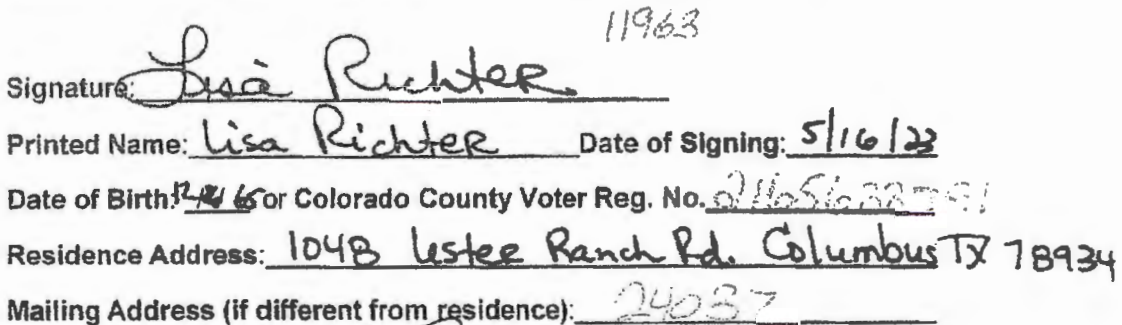 11963
Signature: Lisa Richter
Printed Name: Lisa Richter Date of Signing: 5/16/23
Date of Birth: or Colorado County Voter Reg. No.
Residence Address: 104B Lester Ranch Rd. Columbus TX 78934
Mailing Address (if different from residence): 24037